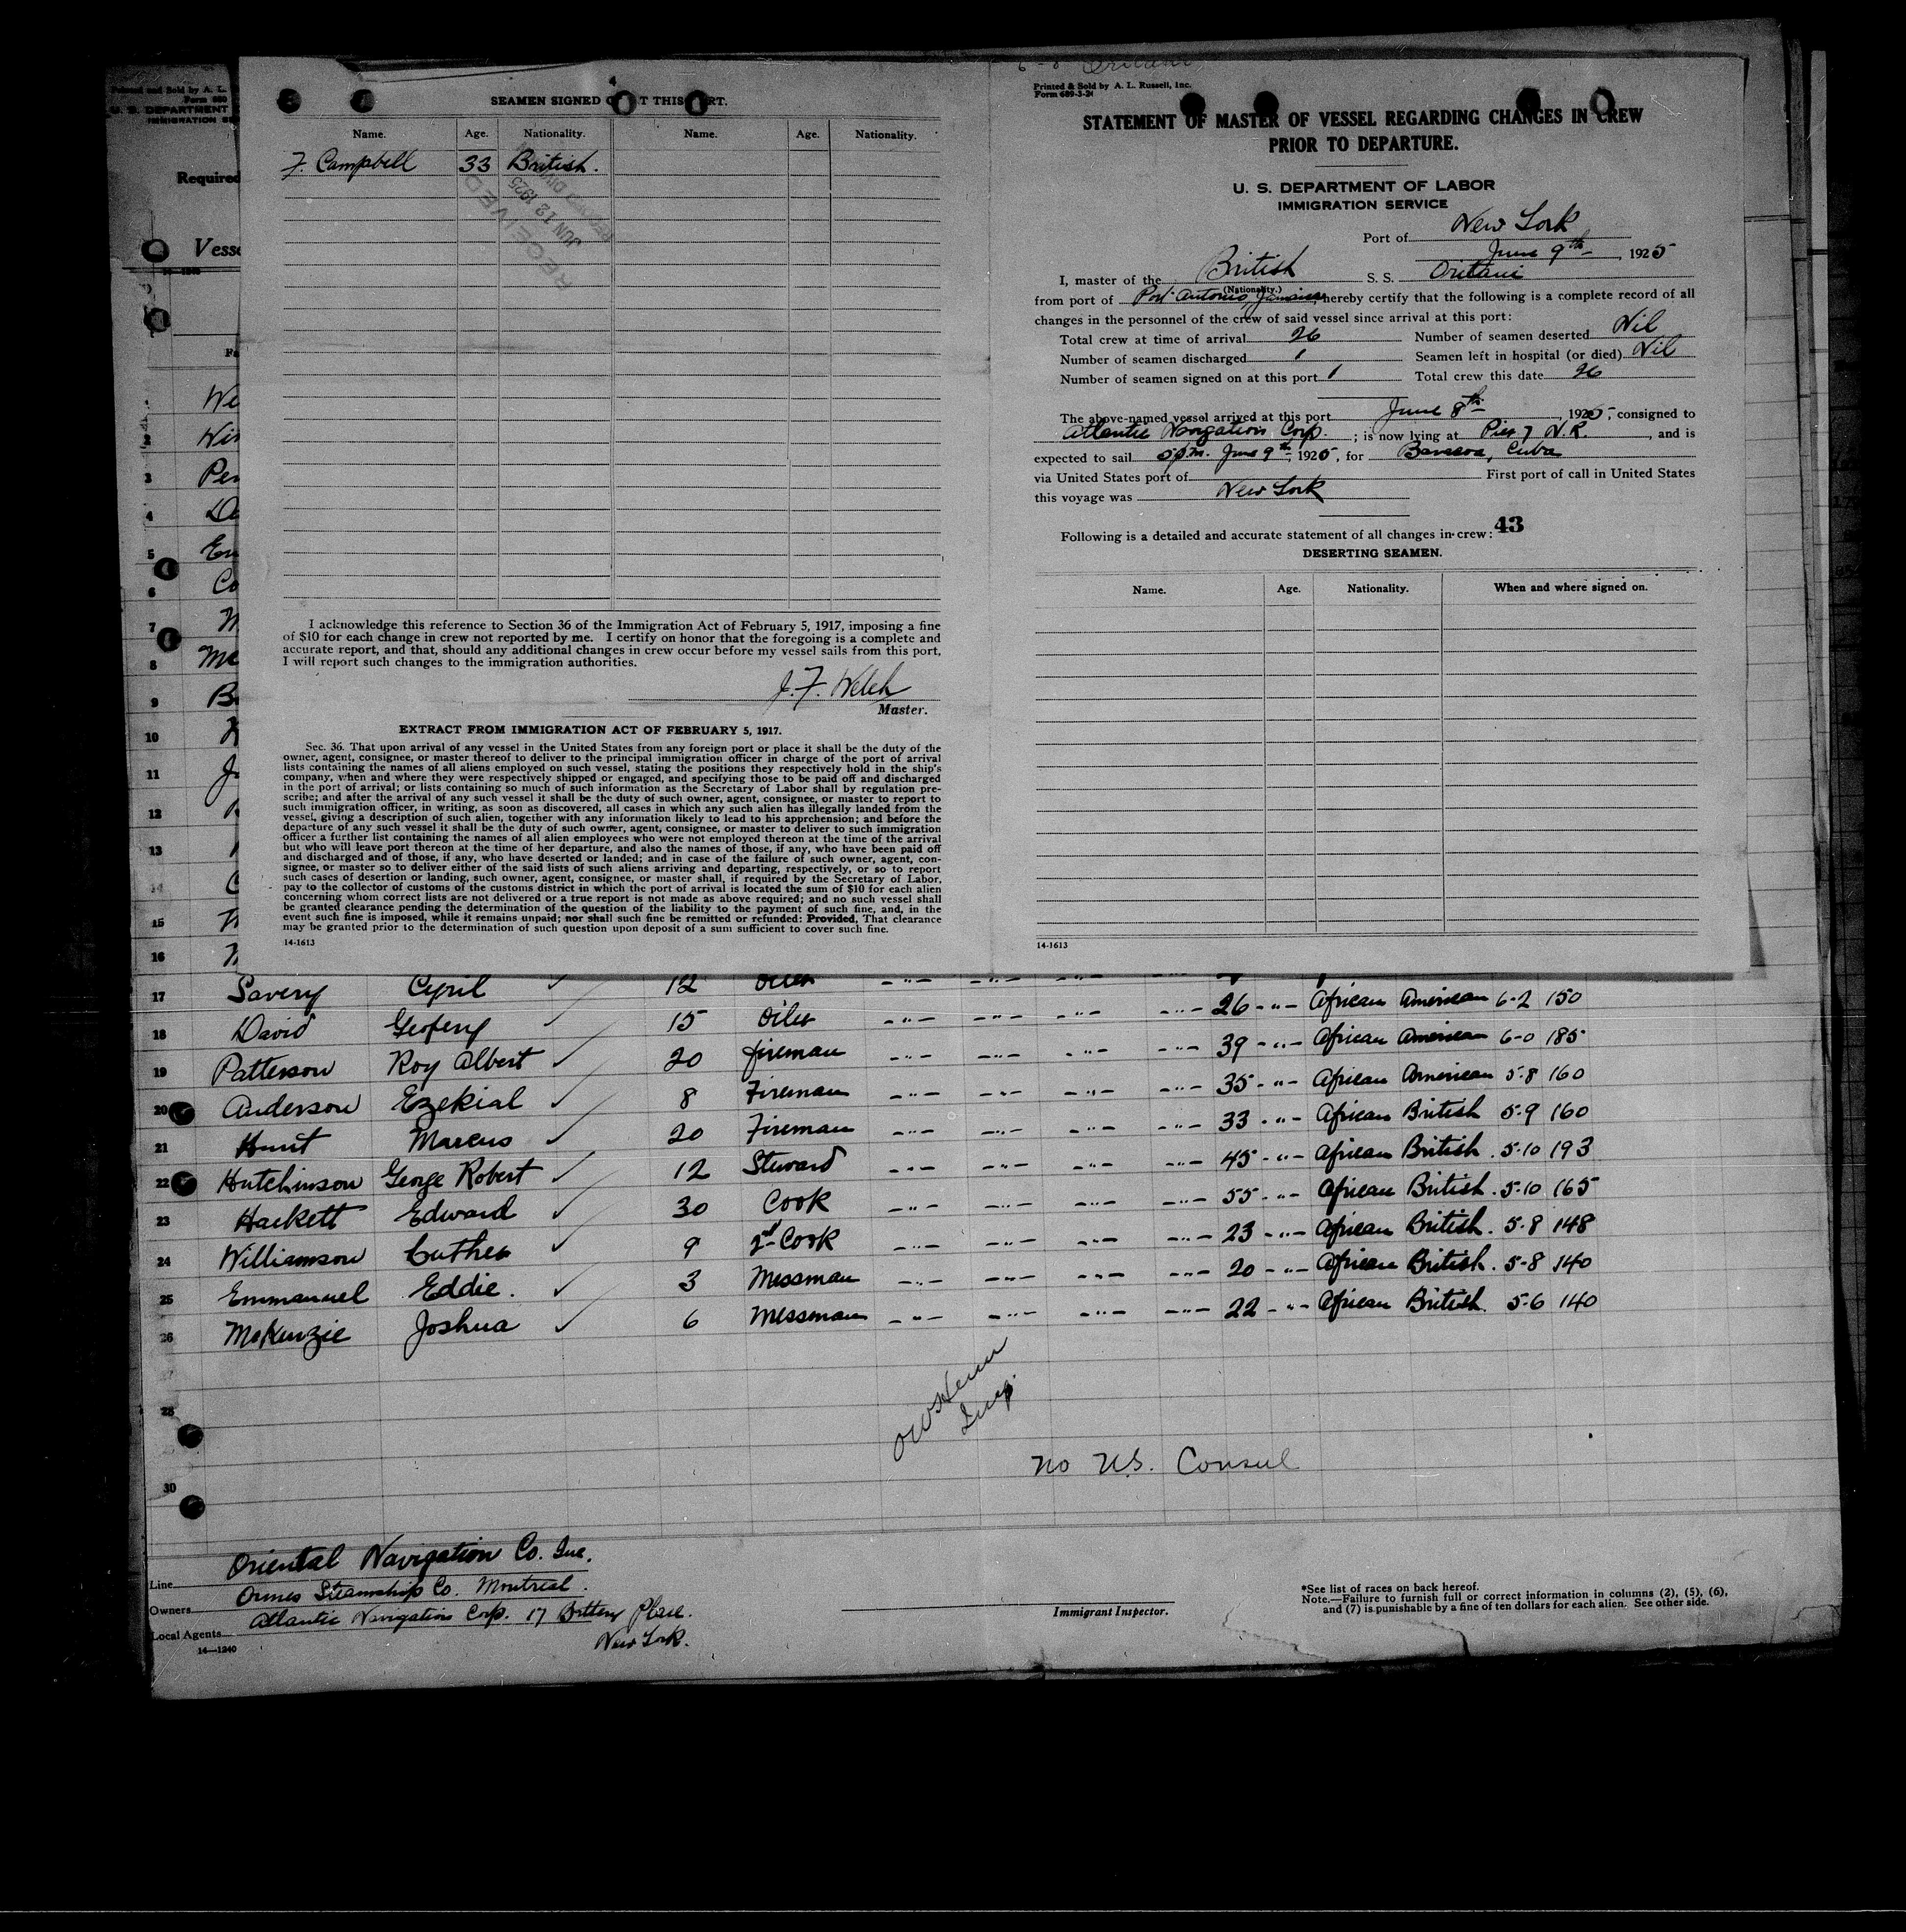 Printed and Sold by A. L.
Form 680
U. S. DEPARTMENT
IMMIGRATION SE
Required
Vesse
14—1240
Fa
We
Win
Per
Da
Em
Co
M
Mc
SEAMEN SIGNED T THIS RT.
Name. Age. Nationality. Name. Age. Nationality.
F. Campbell 33 British.
RECEIVED
JUN 12 1925
RECORDS DIV
I acknowledge this reference to Section 36 of the Immigration Act of February 5, 1917, imposing a fine
of $10 for each change in crew not reported by me. I certify on honor that the foregoing is a complete and
accurate report, and that, should any additional changes in crew occur before my vessel sails from this port,
I will report such changes to the immigration authorities.
J. F. Welch
Master.
EXTRACT FROM IMMIGRATION ACT OF FEBRUARY 5, 1917.
Sec. 36. That upon arrival of any vessel in the United States from any foreign port or place it shall be the duty of the
owner, agent, consignee, or master thereof to deliver to the principal immigration officer in charge of the port of arrival
lists containing the names of all aliens employed on such vessel, stating the positions they respectively hold in the ship's
company, when and where they were respectively shipped or engaged, and specifying those to be paid off and discharged
in the port of arrival; or lists containing so much of such information as the Secretary of Labor shall by regulation pre-
scribe; and after the arrival of any such vessel it shall be the duty of such owner, agent, consignee, or master to report to
such immigration officer, in writing, as soon as discovered, all cases in which any such alien has illegally landed from the
vessel, giving a description of such alien, together with any information likely to lead to his apprehension; and before the
departure of any such vessel it shall be the duty of such owner, agent, consignee, or master to deliver to such immigration
officer a further list containing the names of all alien employees who were not employed thereon at the time of the arrival
but who will leave port thereon at the time of her departure, and also the names of those, if any, who have been paid off
and discharged and of those, if any, who have deserted or landed; and in case of the failure of such owner, agent, con-
signee, or master so to deliver either of the said lists of such aliens arriving and departing, respectively, or so to report
such cases of desertion or landing, such owner, agent, consignee, or master shall, if required by the Secretary of Labor,
pay to the collector of customs of the customs district in which the port of arrival is located the sum of $10 for each alien
concerning whom correct lists are not delivered or a true report is not made as above required; and no such vessel shall
be granted clearance pending the determination of the question of the liability to the payment of such fine, and, in the
event such fine is imposed, while it remains unpaid; nor shall such fine be remitted or refunded: Provided, That clearance
may be granted prior to the determination of such question upon deposit of a sum sufficient to cover such fine.
14-1613
6-8 Oritani
Printed & Sold by A. L. Russell, Inc.
Form 689-3-24
STATEMENT OF MASTER OF VESSEL REGARDING CHANGES IN CREW
PRIOR TO DEPARTURE.
U. S. DEPARTMENT OF LABOR
IMMIGRATION SERVICE
Port of New York
June 9th 1925
I, master of the British S. S. Oritani
(Nationality.)
from port of Port Antonio, Jamaica, hereby certify that the following is a complete record of all
changes in the personnel of the crew of said vessel since arrival at this port:
Total crew at time of arrival 26 Number of seamen deserted Nil
Number of seamen discharged 1 Seamen left in hospital (or died) Nil
Number of seamen signed on at this port 1 Total crew this date 26
The above-named vessel arrived at this port June 8th, 1925, consigned to
Atlantic Navigation Corp.; is now lying at Pier 7 N.R., and is
expected to sail 5 p.m. June 9th, 1925, for Baracoa, Cuba
via United States port of First port of call in United States
this voyage was New York
Following is a detailed and accurate statement of all changes in crew: 43
DESERTING SEAMEN.
Name. Age. Nationality. When and where signed on.
14-1613
17 Savery Cyril 12 Oiler
18 David Geofery 15 Oiler 26 African American 6-2 150
19 Patterson Roy Albert 20 Fireman 39 African American 6-0 185
20 Anderson Ezekial 8 Fireman 35 African American 5-8 160
21 Hunt Marcus 20 Fireman 33 African British 5-9 160
22 Hutchinson George Robert 12 Steward 45 African British. 5-10 193
23 Hackett Edward 30 Cook 55 African British. 5-10 165
24 Williamson Luther 9 2nd Cook 23 African British. 5-8 148
25 Emmanuel Eddie. 3 Messman 20 African British. 5-8 140
26 McKenzie Joshua 6 Messman 22 African British. 5-6 140
27
28
30
Insp.
No U.S. Consul
Line Oriental Navigation Co. Inc.
Owners Ormes Steamship Co. Montreal.
Local Agents Atlantic Navigation Corp. 17 Battery Place.
New York.
14—1240
Immigrant Inspector.
*See list of races on back hereof.
Note.—Failure to furnish full or correct information in columns (2), (5), (6),
and (7) is punishable by a fine of ten dollars for each alien. See other side.